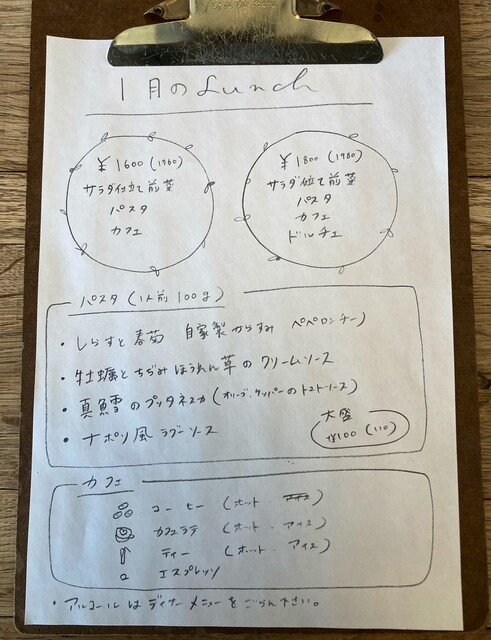 1月のLunch
¥1600(1760)
サラダ仕立て前菜
パスタ
カフェ
¥1800(1980)
サラダ仕立て前菜
パスタ
カフェ
ドルチェ
パスタ(1人前100g)
・しらすと春菊 自家製からすみ ペペロンチーノ
・牡蠣とちぢみほうれん草のクリームソース
・真鱈のプッタネスカ(オリーブ、ケッパーのトマトソース)
・ナポリ風ラグーソース
大盛
¥100(110)
カフェ
コーヒー(ホット・アイス)
カフェラテ(ホット・アイス)
ティー(ホット・アイス)
エスプレッソ
・アルコールはディナーメニューをごらん下さい。